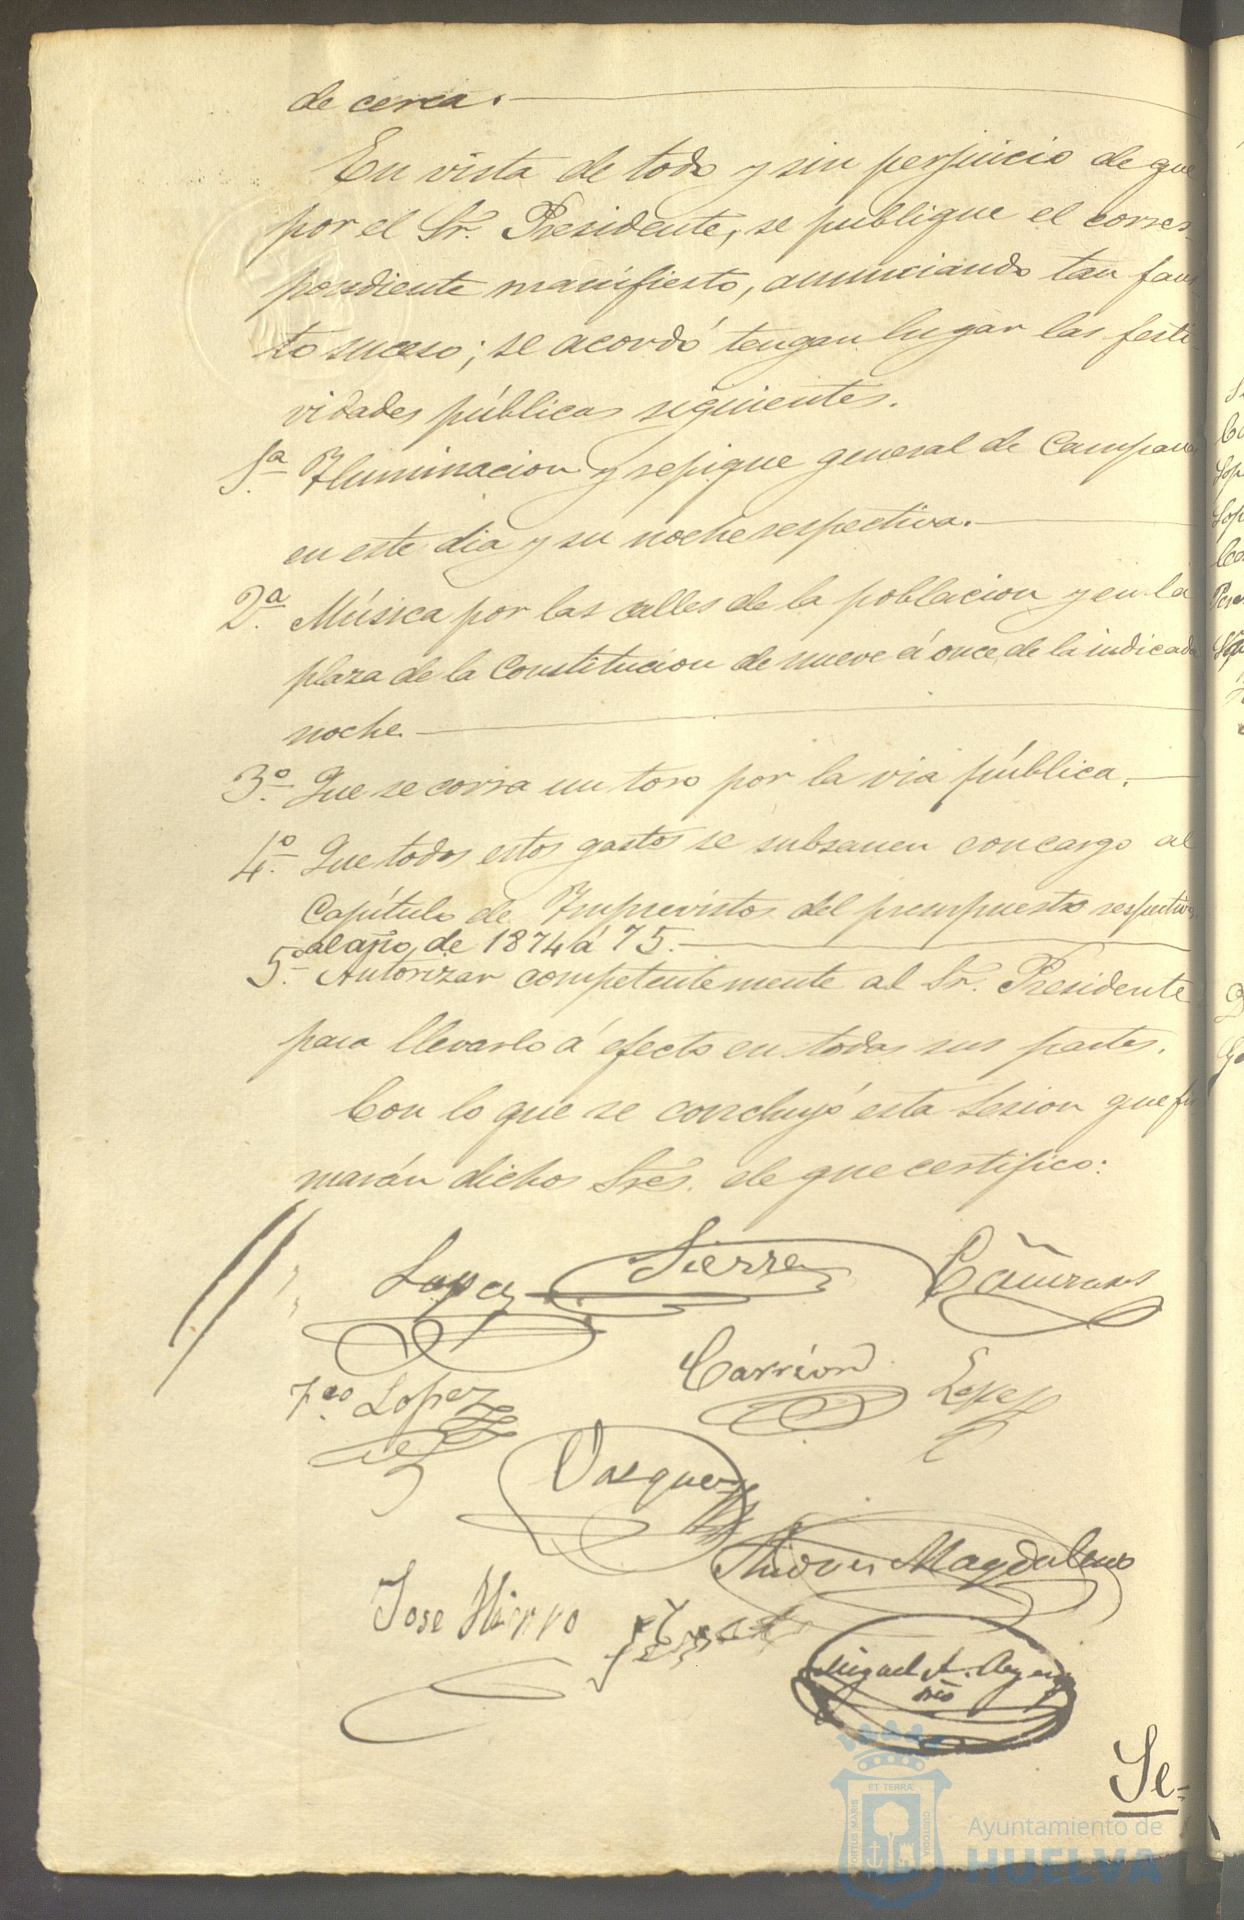 de cerca.
En vista de todo y sin perjuicio de que
por el Sr. Presidente, se publique el corres-
pondiente manifiesto, anunciando tan faus-
to suceso; se acordó tengan lugar las festi-
vidades públicas siguientes.
1.a Iluminacion y repique general de Campanas
en este dia y su noche respectiva.
2.a Música por las calles de la poblacion y en la
plaza de la Constitucion de nueve á once, de la indicada
noche.
3.o Que se corra un toro por la via pública.
4.o Que todos estos gastos se subsanen con cargo al
Capítulo de Imprevistos del presupuesto respectivo
al año de 1874 á 75.
5.o Autorizar competentemente al Sr. Presidente
para llevarlo á efecto en todas sus partes.
Con lo que se concluyó esta Sesion que fir
marán dichos Sres. de que certifico:
Lopez Sierra Cañizares
Fco Lopez Carrión Lopez
Vazquez
Magdaleno
Jose Hierro
Miguel A.
Srio
Se-
ET TERRÆ
PORTUS MARIS
CUSTODIA
Ayuntamiento de
HUELVA